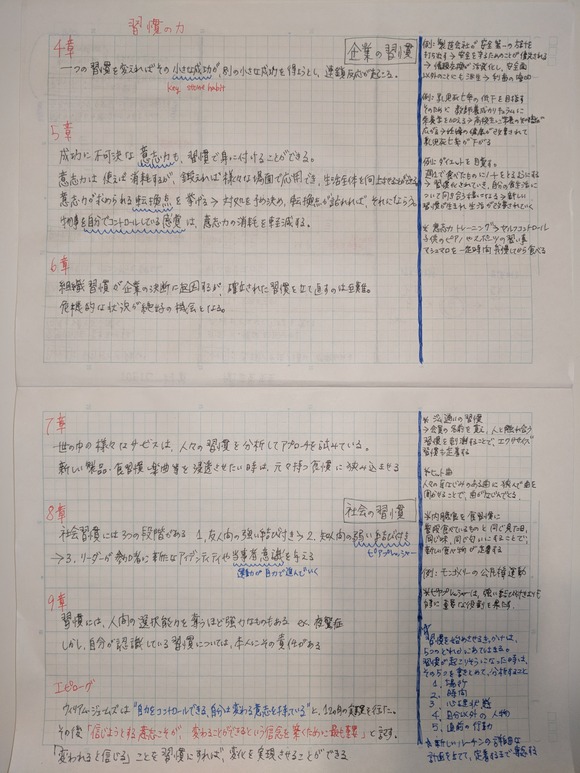 習慣の力
4章
企業の習慣
一つの習慣を変えればその小さな成功が、別の小さな成功を得ようとし、連鎖反応が起こる。
key stone habit
5章
成功に不可欠な意志力も、習慣で身に付けることができる。
意志力は使えば消耗するが、鍛えれば様々な場面で応用でき、生活全体を向上させる
意志力が求められる転換点を挙げる→対处を予め決め、転換点が訪れれば、それにならう。
物事を自分でコントロールしている感覚は、意志力の消耗を軽減する。
6章
組織習慣が企業の決断に起因するが、確立された習慣を立て直すのは困難。
危機的な状況が絶好の機会となる。
例:製造会社が安全第一の方針を
打ち出す→安全を守るためにことが優先される
以外のことにも派生→利益の増加
例:乳児死亡率の低下を目指す
そのために教師養成カリキュラムに
栄養学を加える→高校生に栄養の知識が
広がる→妊婦の健康が改善されて
乳児死亡率が下がる
例:ダイエットを目指す。
週1で食べたものにメモをとるようにする
→習慣化されていき、自分の食生活に
ついて向き合う様になる→新しい
習慣が生まれ、生活が改善されていく
※意志力トレーニング→セルフコントロール
子供のピアノやスポーツの習い事
マシュマロを一定時間我慢してから食べる
7章
世の中の様々なサービスは、人々の習慣を分析してアプローチを試みている。
新しい製品・食習慣・楽曲等を浸透させたい時は、元々持つ習慣に挟み込ませる
8章
社会の習慣
社会習慣には3つの段階がある 1,友人間の強い結び付き→2,知人間の弱い結び付き
ピアプレッシャー
→3,リーダーが参加者に新たなアイデンティティや当事者意識を与える
運動が自力で進んでいく
9章
習慣には、人間の選択能力を奪うほど強力なものもある ex. 夜驚症
しかし、自分が認識している習慣については、本人にその責任がある
エピローグ
ウィリアムジェームズは"自力をコントロールできる、自分は変わる意志を持っている"と、12カ月の実験を行った。
その後「信じようとする意志こそが、変わることができるという信念を築くために最も重要」と話す。
「変われると信じる」ことを習慣にすれば、変化を実現させることができる
※ジム通いの習慣
→会員の名前を覚え、人と触れ合う
習慣を刺激することで、エクササイズ
習慣も定着する
※ヒット曲
人々の耳なじみのある曲に挟んで曲を
聞かせることで、曲がなじんでくる。
※内臓食を食習慣に
普段食べているものと同じ見た目、
同じ味、同じ匂いにすることで、
新しい食べ物が定着する
例:モンゴメリーの公民権運動
※ピアプレッシャーは、強い結び付きよりも
非常に重要な役割を果たす。
習慣を始めさせるきっかけは、
5つのどれかにあてはまる。
習慣が起こりそうになった時は、
その5つを書きとめて、分析すること
1,場所
2,時間
3,心理状態
4,自分以外の人物
5,直前の行動
※新しいルーチンの詳細な
計画を立て、定着するまで継続する